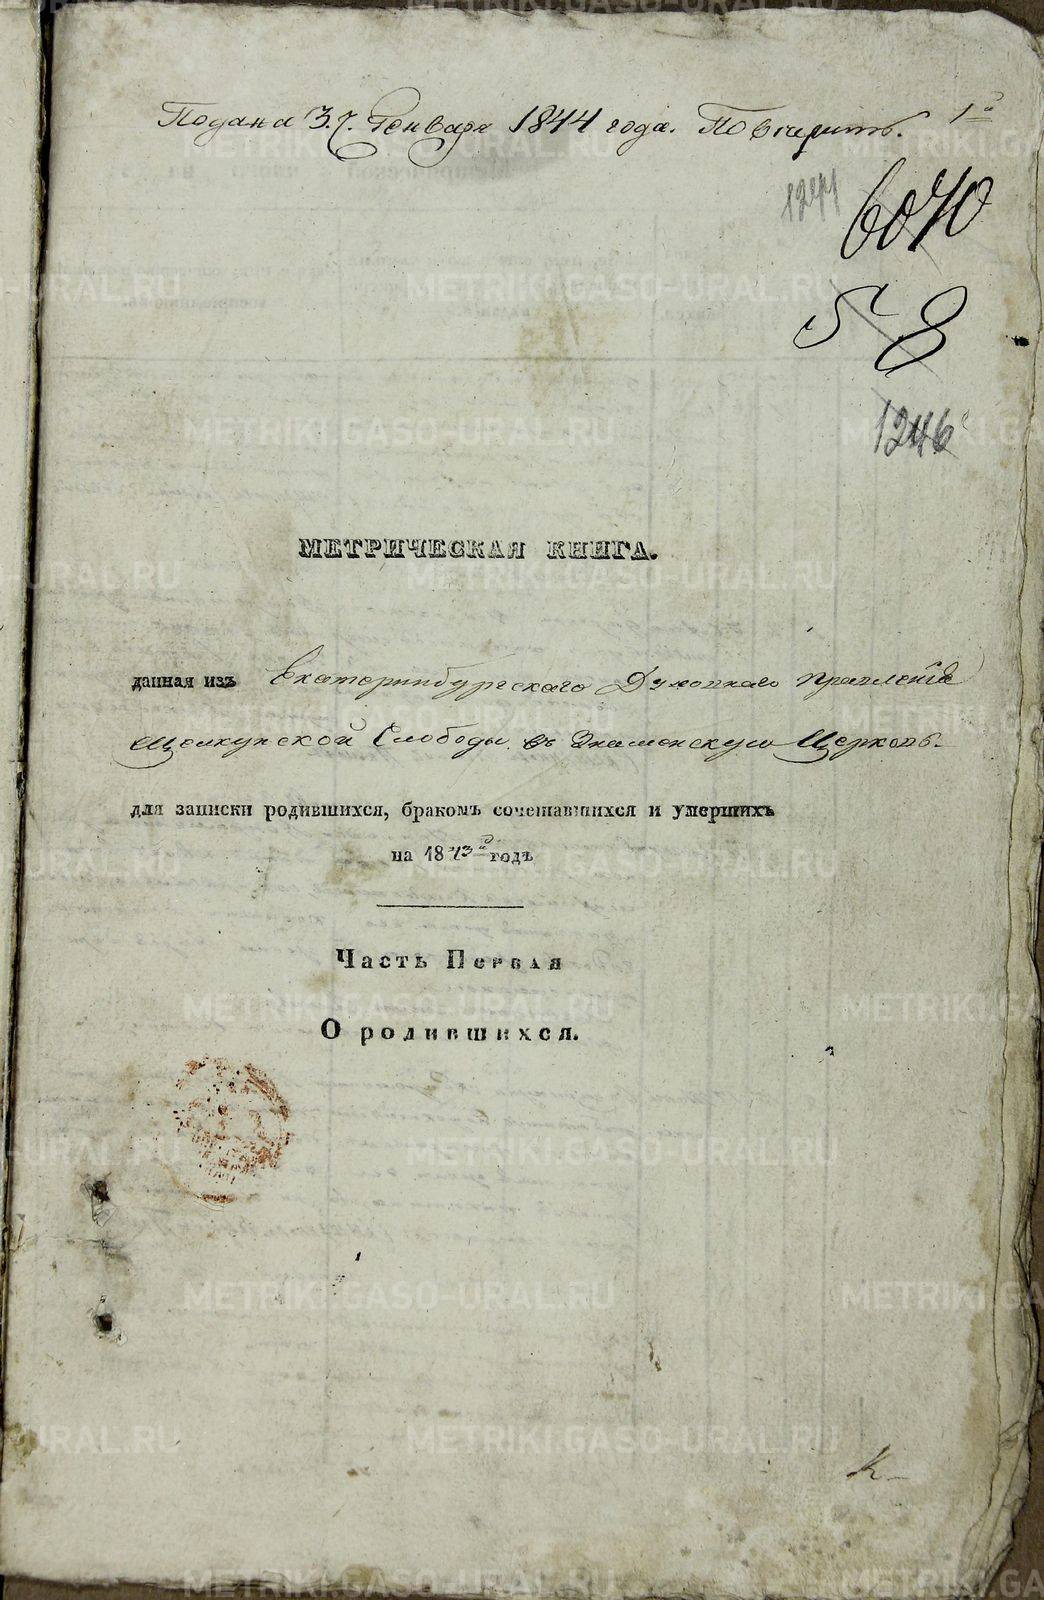 Подана 3. Генваря 1844 года. Повѣрить. 1й
1241
6070
58
1246
МЕТРИЧЕСКАЯ КНИГА.
данная изъ Екатеринбургскаго Духовнаго Правленія
Щелкунской Слободы въ Знаменскую Церковь.
для записки родившихся, бракомъ сочетавшихся и умершихъ
на 1843й годъ
Часть Первая
О родившихся.
METRIKI.GASO-URAL.RU